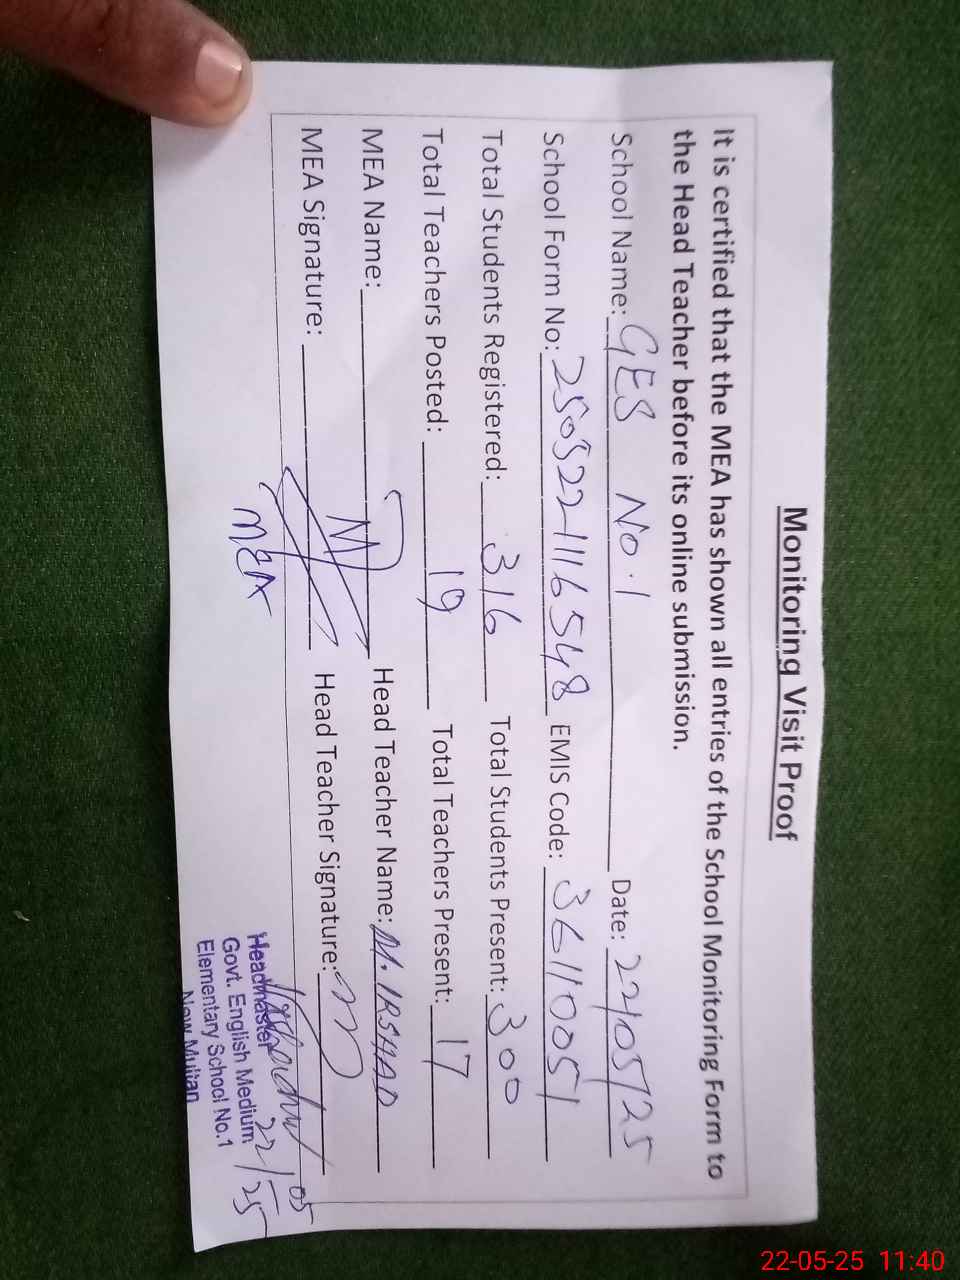 Monitoring Visit Proof
It is certified that the MEA has shown all entries of the School Monitoring Form to
the Head Teacher before its online submission.
School Name: GES No. 1 Date: 22/05/25
School Form No: 2505221116548 EMIS Code: 36110051
Total Students Registered: 316 Total Students Present: 300
Total Teachers Posted: 19 Total Teachers Present: 17
MEA Name: Head Teacher Name: M. IRSHAD
MEA Signature: Head Teacher Signature:
MEA
Headmaster
Govt. English Medium
Elementary School No.1
New Multan
22/05/25
22-05-25 11:40